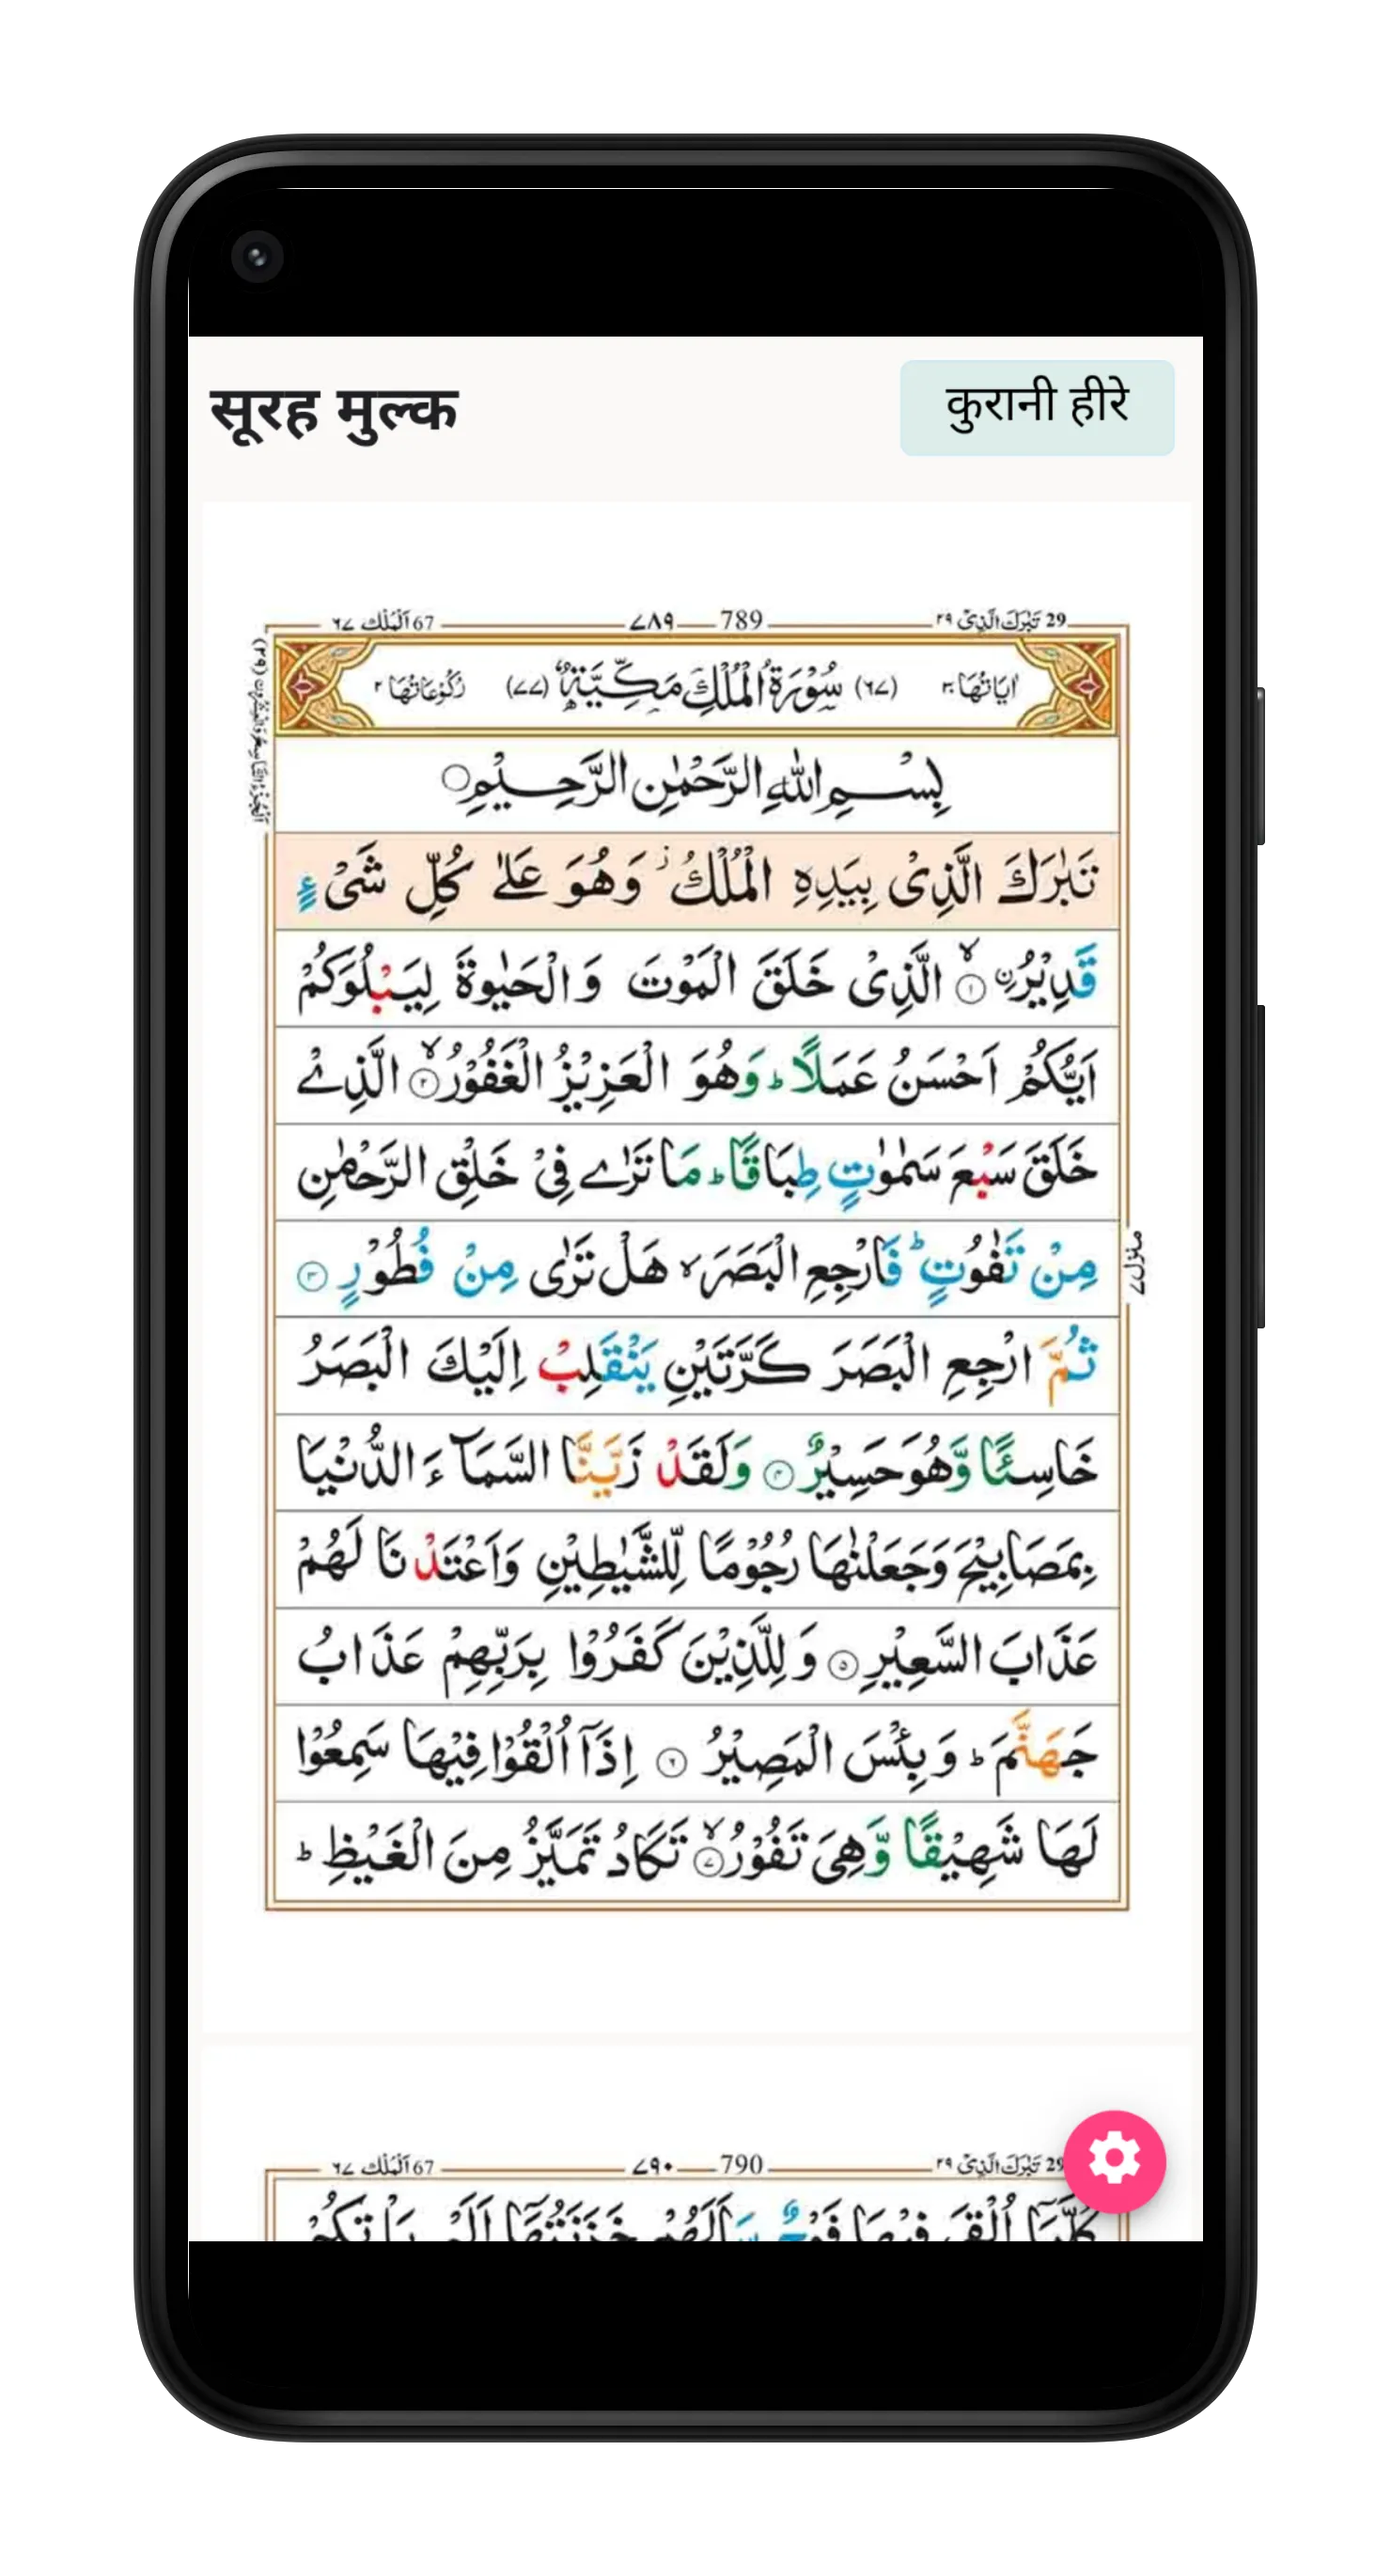 सूरह मुल्क
कुरानी हीरे
29 تَبٰرَكَ الَّذِیْ ٢٩ 789 ٧٨٩ 67 اَلْمُلْك ٦٧
اٰيَاتُهَا ٣٠ (٦٧) سُوْرَةُ الْمُلْكِ مَكِّيَّةٌ (٧٧) رُكُوْعَاتُهَا ٢
بِسْمِ اللّٰهِ الرَّحْمٰنِ الرَّحِيْمِ
تَبٰرَكَ الَّذِیْ بِيَدِهِ الْمُلْكُ ز وَهُوَ عَلٰی كُلِّ شَیْءٍ
قَدِيْرُ ۨ ۙ ١ الَّذِیْ خَلَقَ الْمَوْتَ وَالْحَيٰوةَ لِيَبْلُوَكُمْ
اَيُّكُمْ اَحْسَنُ عَمَلًا ؕ وَهُوَ الْعَزِيْزُ الْغَفُوْرُ ۙ ٢ الَّذِیْ
خَلَقَ سَبْعَ سَمٰوٰتٍ طِبَاقًا ؕ مَا تَرٰی فِیْ خَلْقِ الرَّحْمٰنِ
مِنْ تَفٰوُتٍ ؕ فَارْجِعِ الْبَصَرَ ۙ هَلْ تَرٰی مِنْ فُطُوْرٍ ٣
ثُمَّ ارْجِعِ الْبَصَرَ كَرَّتَيْنِ يَنْقَلِبْ اِلَيْكَ الْبَصَرُ
خَاسِئًا وَّهُوَ حَسِيْرٌ ٤ وَلَقَدْ زَيَّنَّا السَّمَآءَ الدُّنْيَا
بِمَصَابِيْحَ وَجَعَلْنٰهَا رُجُوْمًا لِّلشَّيٰطِيْنِ وَاَعْتَدْنَا لَهُمْ
عَذَابَ السَّعِيْرِ ٥ وَلِلَّذِيْنَ كَفَرُوْا بِرَبِّهِمْ عَذَابُ
جَهَنَّمَ ؕ وَبِئْسَ الْمَصِيْرُ ٦ اِذَآ اُلْقُوْا فِيْهَا سَمِعُوْا
لَهَا شَهِيْقًا وَّهِیَ تَفُوْرُ ۙ ٧ تَكَادُ تَمَيَّزُ مِنَ الْغَيْظِ ؕ
منزل ٧
29 تَبٰرَكَ الَّذِیْ ٢٩ 790 ٧٩٠ 67 اَلْمُلْك ٦٧
كُلَّمَآ اُلْقِیَ فِيْهَا فَوْجٌ سَاَلَهُمْ خَزَنَتُهَآ اَلَمْ يَاْتِكُمْ